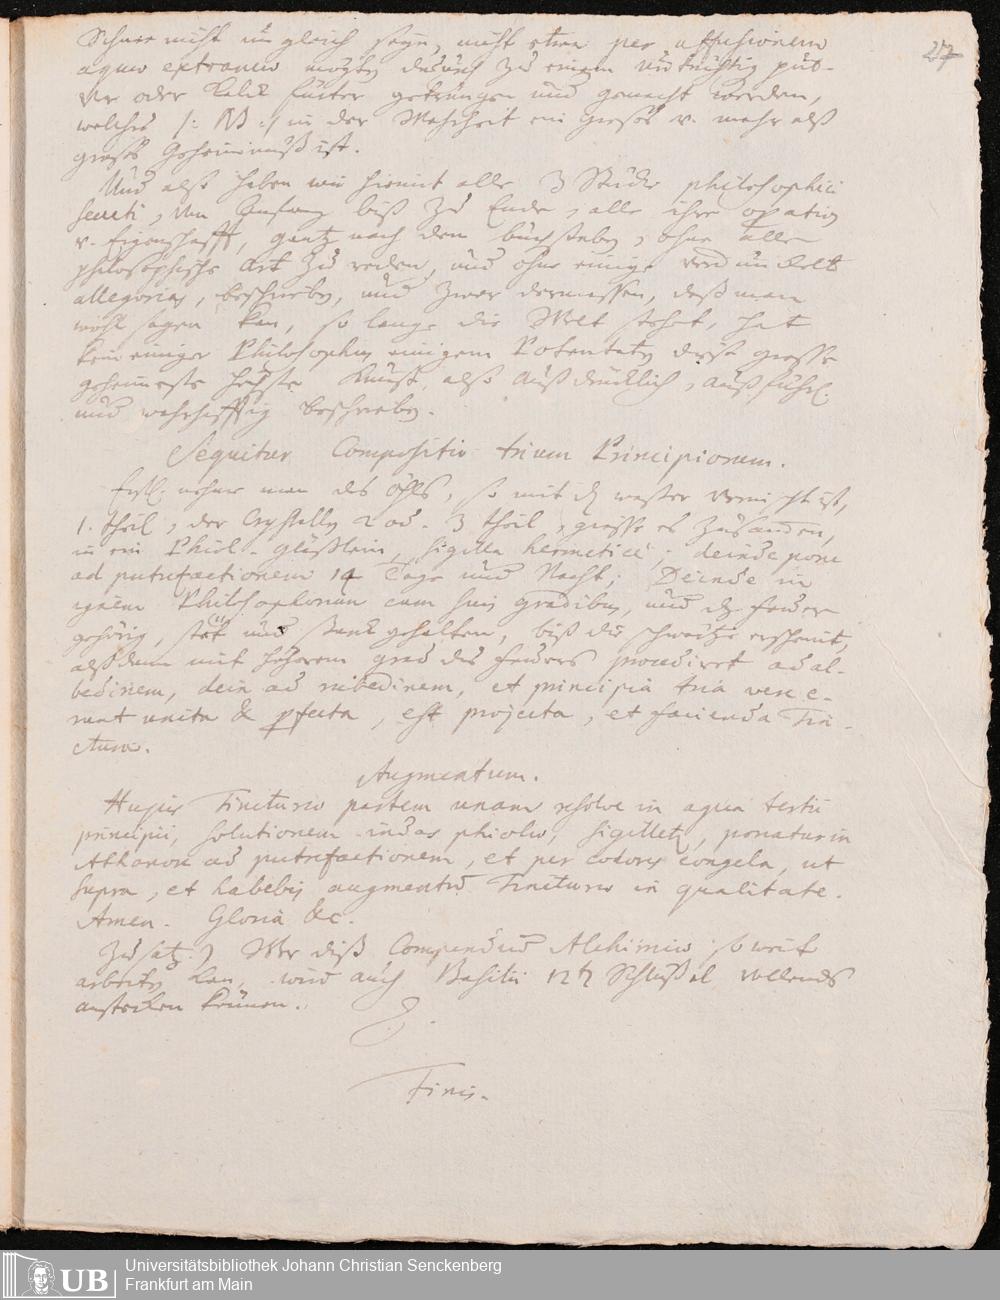 27
Schnee nicht ungleich seyn, nicht etwa per affusionem
aquæ extraneæ mögte dadurch zu einem pul-
ver oder Kalck gedrungen und gemacht werden,
welches /: NB :/ in der Wahrheit ein groses v. mehr alß
groses Geheimnuß ist.
Und also haben wir hiemit alle 3 Stücke philosophici
secreti, von Anfang biß zu Ende, alle ihre opation
v. Eigenschafft, gantz nach dem buchstaben, ohne alle
philosophische Art zu reden, und ohne einige verdunckelte
allegorias, beschrieben, und zwar dermassen, daß man
wohl sagen kan, so lange die Welt stehet, hat
kein einiger Philosophus einigem Potentaten diese grosse
geheimeste höchste Kunst, also außdrücklich, außführl.
und wahrhafftig beschrieben.
Sequitur Compositio trium Principiorum.
Erstl. nehme man des öhls, so mit dem waßer vermischt ist,
1. theil, der Crystallen 2 ad. 3 theil, giesse es zusammen,
in ein Phiol-gläßlein, sigilla hermeticè; deinde pone
ad putrefactionem 14 Tage und Nacht; Deinde in
ignem Philosophorum cum suis gradibus, und das feuer
gehörig, stät und starck gehalten, biß die schwärtze erscheint,
alßdann mit höherem grad des feuers procediret ad al-
bedinem, dein ad rubedinem, et principia tria vere e-
runt unita & pfecta, est projecta, et facienda Tin-
ctura.
Augmentum.
Hujus Tincturæ partem unam resolve in aqua tertii
principii, solutionem indas phiolæ, sigilletur, ponatur in
Athanor ad putrefactionem, et per colores congela, ut
supra, et habebis augmentum Tincturæ in qualitate.
Amen. Gloria &c.
Zusatz.) Wer diß Compendium Alchimiæ so weit
arbeiten kan, wird auch Basilii 12 Schlüßel vollends
anstecken können.
Finis.
Universitätsbibliothek Johann Christian Senckenberg
Frankfurt am Main
UB